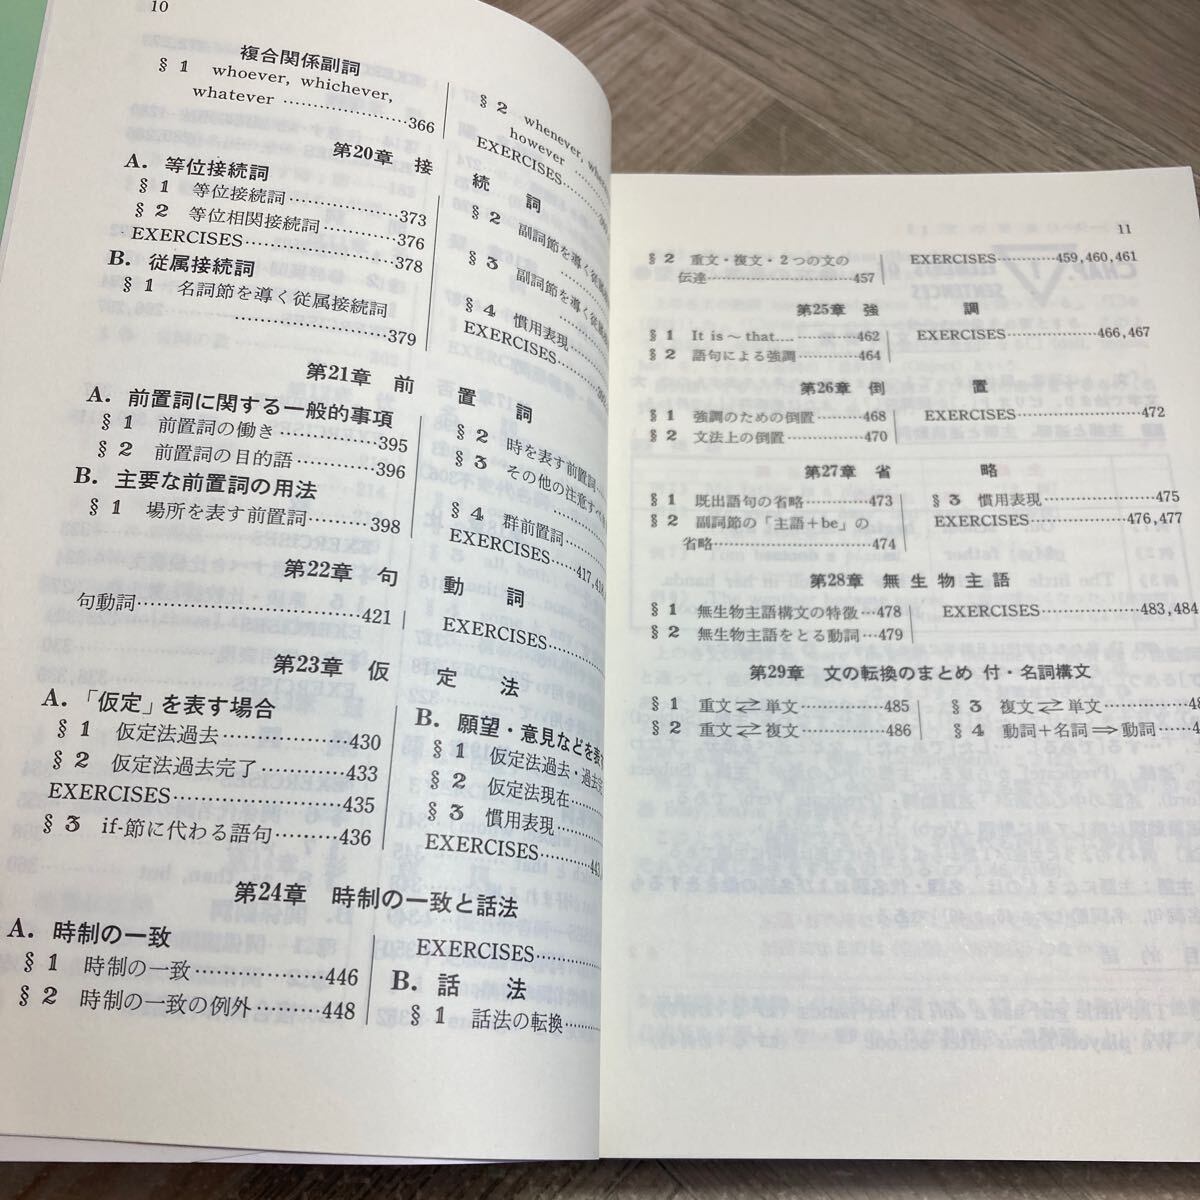 10
複合関係副詞
§1 whoever, whichever,
whatever …………………366
§2 whenever,
however
EXERCISES
第20章 接続詞
A. 等位接続詞
§1 等位接続詞……………373
§2 等位相関接続詞………376
EXERCISES………………378
B. 従属接続詞
§1 名詞節を導く従属接続詞
…………………379
§2 副詞節を導く
§3 副詞節を導く
§4 慣用表現
EXERCISES
第21章 前置詞
A. 前置詞に関する一般的事項
§1 前置詞の働き…………395
§2 前置詞の目的語………396
B. 主要な前置詞の用法
§1 場所を表す前置詞………398
§2 時を表す前置詞
§3 その他の注意すべき
§4 群前置詞
EXERCISES……417,
第22章 句動詞
句動詞……………………421
EXERCISES
第23章 仮定法
A. 「仮定」を表す場合
§1 仮定法過去……………430
§2 仮定法過去完了………433
EXERCISES………………435
§3 if-節に代わる語句………436
B. 願望・意見などを表す
§1 仮定法過去・過去完了
§2 仮定法現在
§3 慣用表現
EXERCISES
第24章 時制の一致と話法
A. 時制の一致
§1 時制の一致……………446
§2 時制の一致の例外………448
EXERCISES
B. 話法
§1 話法の転換
11
§2 重文・複文・2つの文の
伝達……………………457
EXERCISES……………459,460,461
第25章 強調
§1 It is～that.…………462
§2 語句による強調…………464
EXERCISES……………466,467
第26章 倒置
§1 強調のための倒置………468
§2 文法上の倒置……………470
EXERCISES……………472
第27章 省略
§1 既出語句の省略…………473
§2 副詞節の「主語+be」の
省略……………………474
§3 慣用表現………………475
EXERCISES……………476,477
第28章 無生物主語
§1 無生物主語構文の特徴…478
§2 無生物主語をとる動詞…479
EXERCISES……………483,484
第29章 文の転換のまとめ 付・名詞構文
§1 重文⇄単文……………485
§2 重文⇄複文……………486
§3 複文⇄単文
§4 動詞+名詞⇒動詞